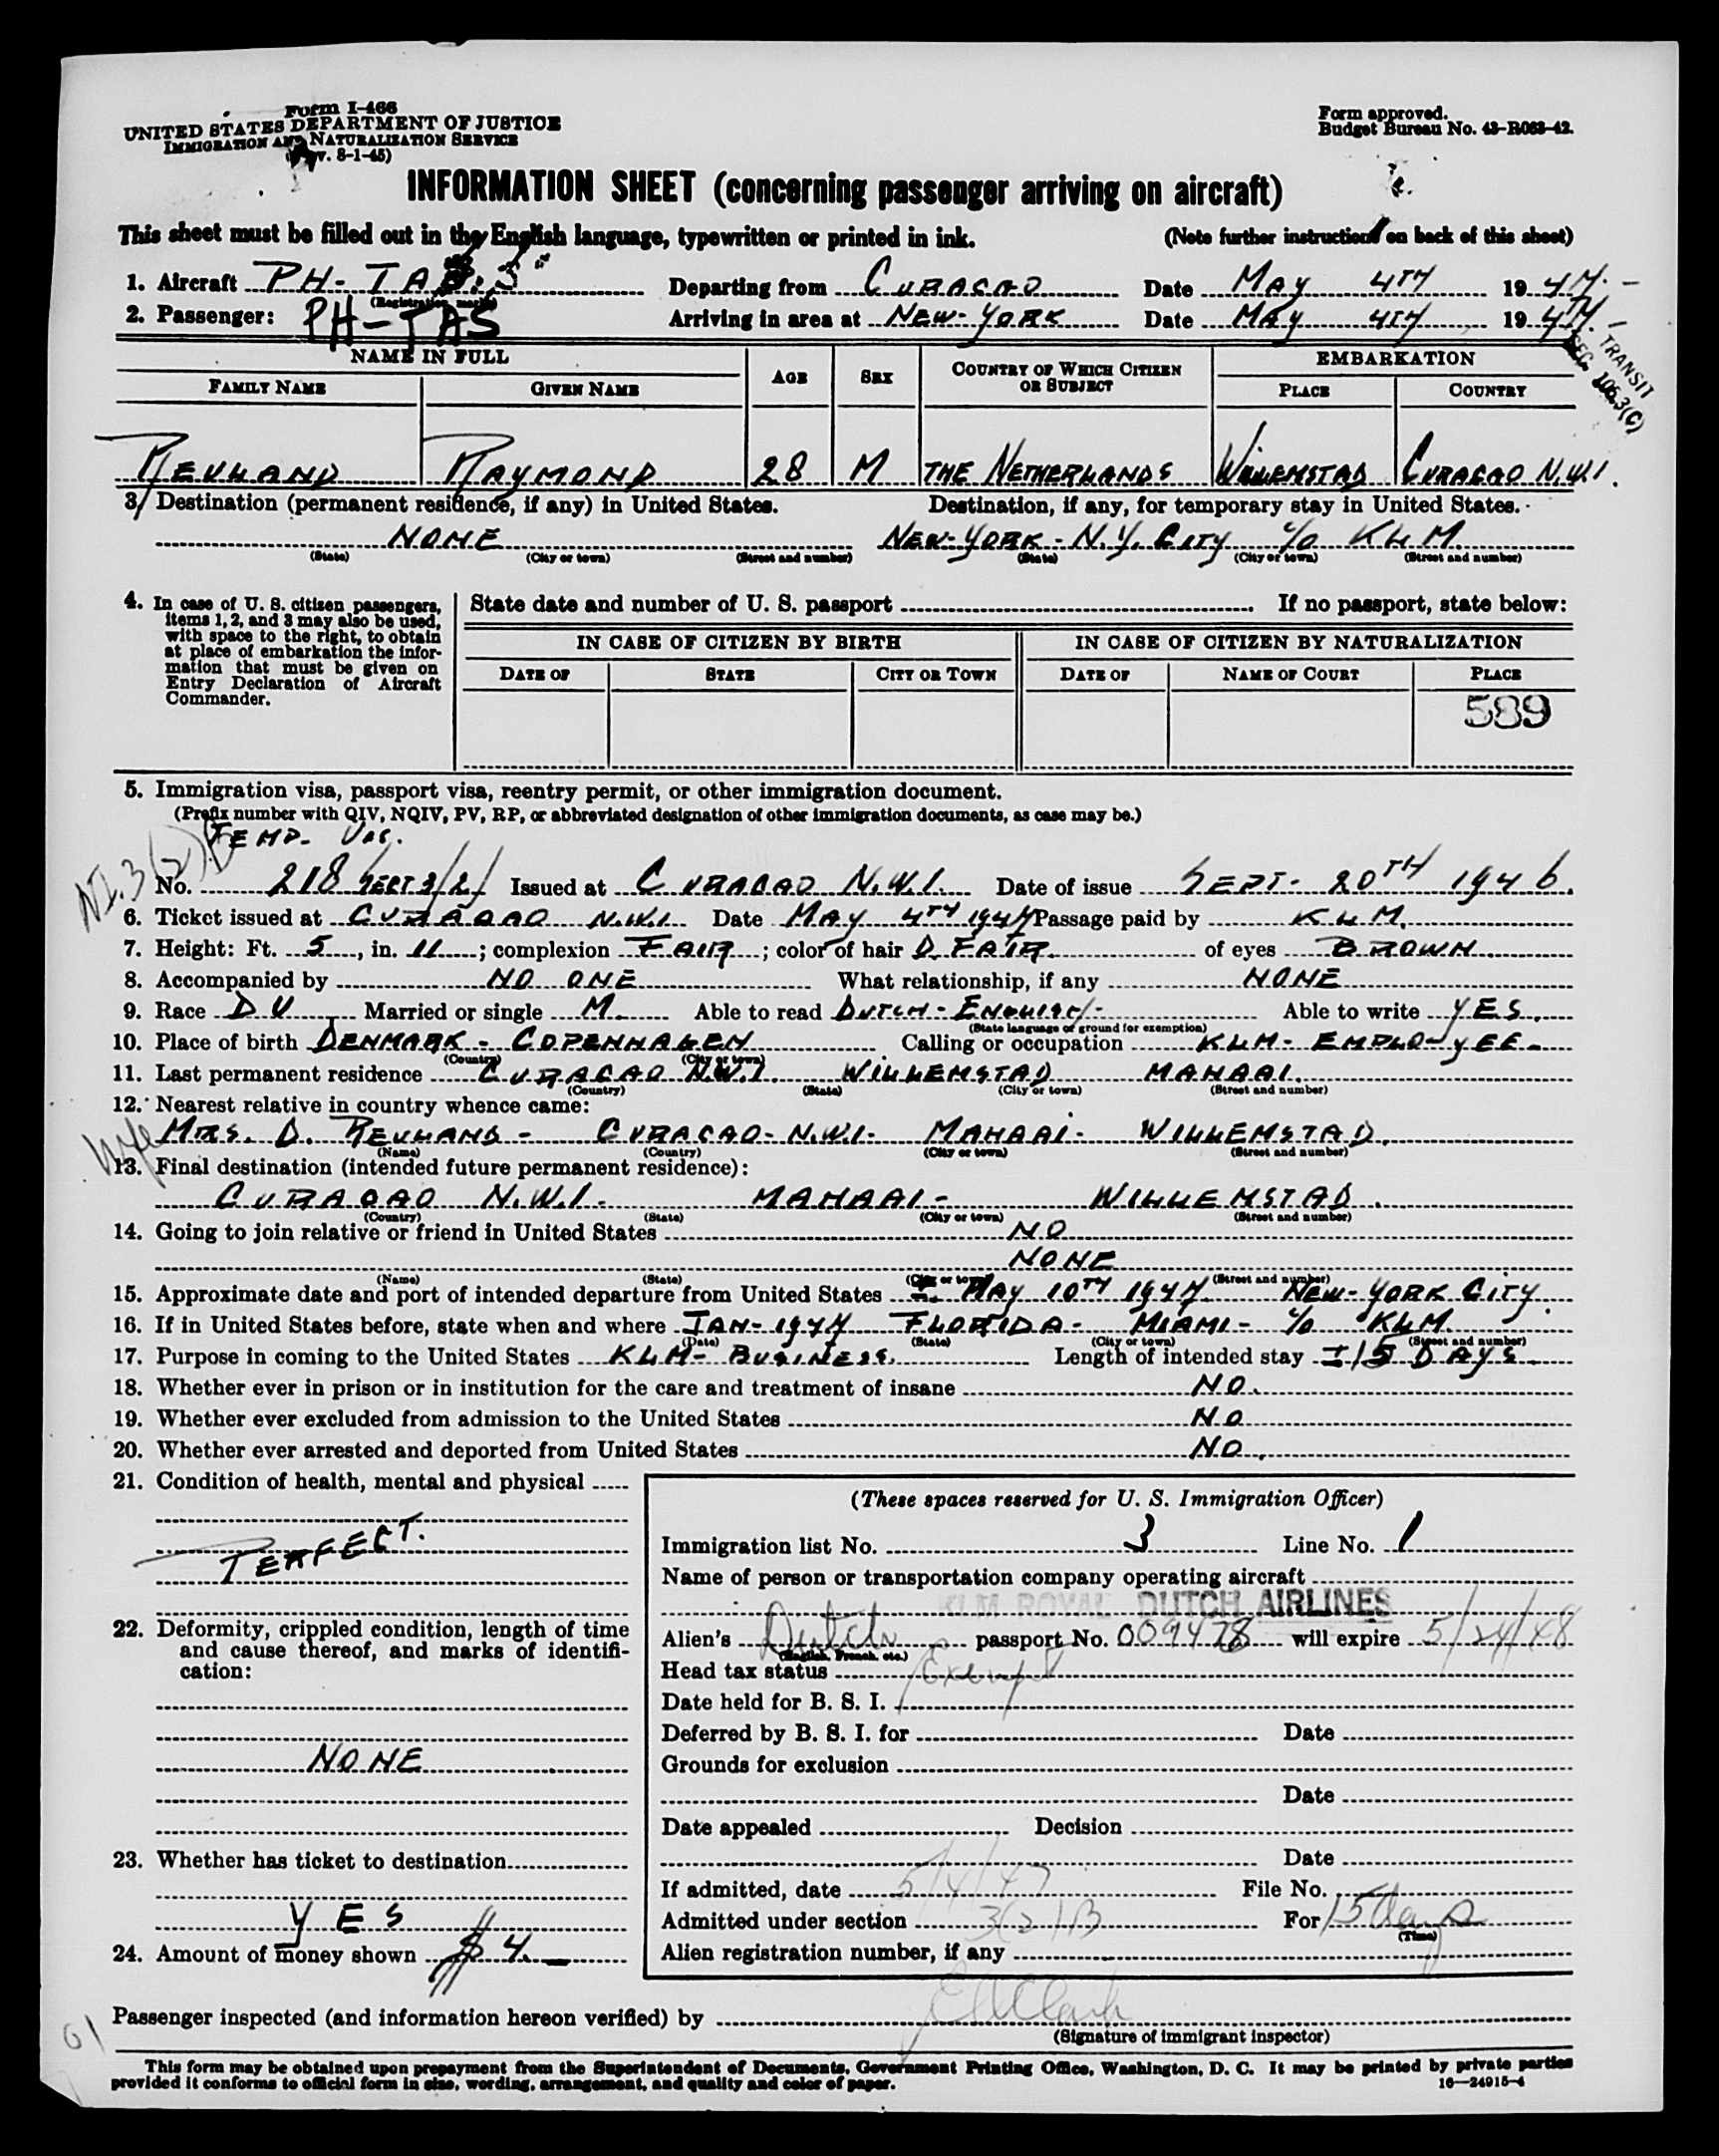 Form I-466
UNITED STATES DEPARTMENT OF JUSTICE
IMMIGRATION AND NATURALIZATION SERVICE
(Rev. 8-1-45)
Form approved.
Budget Bureau No. 43-R063-42.
INFORMATION SHEET (concerning passenger arriving on aircraft)
This sheet must be filled out in the English language, typewritten or printed in ink. (Note further instructions on back of this sheet)
1. Aircraft PH-TAS Departing from CURACAO Date MAY 4TH 1947.-
(Registration marks)
2. Passenger: PH-TAS Arriving in area at NEW-YORK Date MAY 4TH 1947.-
TRANSIT
SEC. 106.3(C)
NAME IN FULL AGE SEX COUNTRY OF WHICH CITIZEN OR SUBJECT EMBARKATION
FAMILY NAME GIVEN NAME PLACE COUNTRY
REULAND RAYMOND 28 M THE NETHERLANDS WILLEMSTAD CURACAO N.W.I.
3. Destination (permanent residence, if any) in United States. Destination, if any, for temporary stay in United States.
NONE NEW-YORK-N.Y. CITY c/o KLM.
(State) (City or town) (Street and number) (State) (City or town) (Street and number)
4. In case of U. S. citizen passengers, items 1, 2, and 3 may also be used, with space to the right, to obtain at place of embarkation the information that must be given on Entry Declaration of Aircraft Commander.
State date and number of U. S. passport If no passport, state below:
IN CASE OF CITIZEN BY BIRTH IN CASE OF CITIZEN BY NATURALIZATION
DATE OF STATE CITY OR TOWN DATE OF NAME OF COURT PLACE
589
5. Immigration visa, passport visa, reentry permit, or other immigration document.
(Prefix number with QIV, NQIV, PV, RP, or abbreviated designation of other immigration documents, as case may be.)
TEMP. VIS.
No. 218 SECT 3/2/ Issued at CURACAO N.W.I. Date of issue SEPT- 20TH 1946.
6. Ticket issued at CURACAO N.W.I. Date MAY 4TH 1947 Passage paid by KLM.
7. Height: Ft. 5, in. 11; complexion FAIR; color of hair D. FAIR. of eyes BROWN.
8. Accompanied by NO ONE What relationship, if any NONE
9. Race DU Married or single M. Able to read DUTCH-ENGLISH- Able to write YES.
(State language or ground for exemption)
10. Place of birth DENMARK - COPENHAGEN Calling or occupation KLM-EMPLO-YEE-
(Country) (City or town)
11. Last permanent residence CURACAO N.W.I. WILLEMSTAD MAHAAI.
(Country) (State) (City or town) (Street and number)
12. Nearest relative in country whence came:
wife MRS. D. REULAND - CURACAO-N.W.I- MAHAAI- WILLEMSTAD.
(Name) (Country) (City or town) (Street and number)
13. Final destination (intended future permanent residence):
CURACAO N.W.I. MAHAAI- WILLEMSTAD.
(Country) (State) (City or town) (Street and number)
14. Going to join relative or friend in United States NO
NONE
(Name) (State) (City or town) (Street and number)
15. Approximate date and port of intended departure from United States ± MAY 10TH 1947 NEW-YORK CITY.
16. If in United States before, state when and where JAN-1947 FLORIDA- MIAMI- c/o KLM.
(Date) (State) (City or town) (Street and number)
17. Purpose in coming to the United States KLM-BUSINESS. Length of intended stay ± 15 DAYS.
18. Whether ever in prison or in institution for the care and treatment of insane NO.
19. Whether ever excluded from admission to the United States NO
20. Whether ever arrested and deported from United States NO.
21. Condition of health, mental and physical
PERFECT.
22. Deformity, crippled condition, length of time and cause thereof, and marks of identification:
NONE
23. Whether has ticket to destination
YES
24. Amount of money shown $4.-
(These spaces reserved for U. S. Immigration Officer)
Immigration list No. 3 Line No. 1
Name of person or transportation company operating aircraft
KLM ROYAL DUTCH AIRLINES
Alien's Dutch passport No. 009478 will expire 5/24/48
(English, French, etc.)
Head tax status Exempt
Date held for B. S. I.
Deferred by B. S. I. for Date
Grounds for exclusion
Date
Date appealed Decision
Date
If admitted, date 5/4/47 File No.
Admitted under section 3(2)B For 15 days
(Time)
Alien registration number, if any
Passenger inspected (and information hereon verified) by
(Signature of immigrant inspector)
This form may be obtained upon prepayment from the Superintendent of Documents, Government Printing Office, Washington, D. C. It may be printed by private parties
provided it conforms to official form in size, wording, arrangement, and quality and color of paper.
16—24915-4